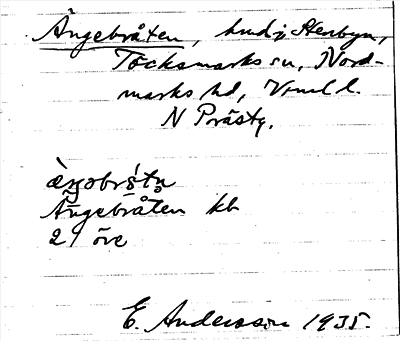 Ängebråten, hmd i Stenbyn,
Töcksmarks sn, Nord-
marks hd, Vrml l.
N Prästg.
Ängebråten kb
21 öre
E. Andersson 1935.